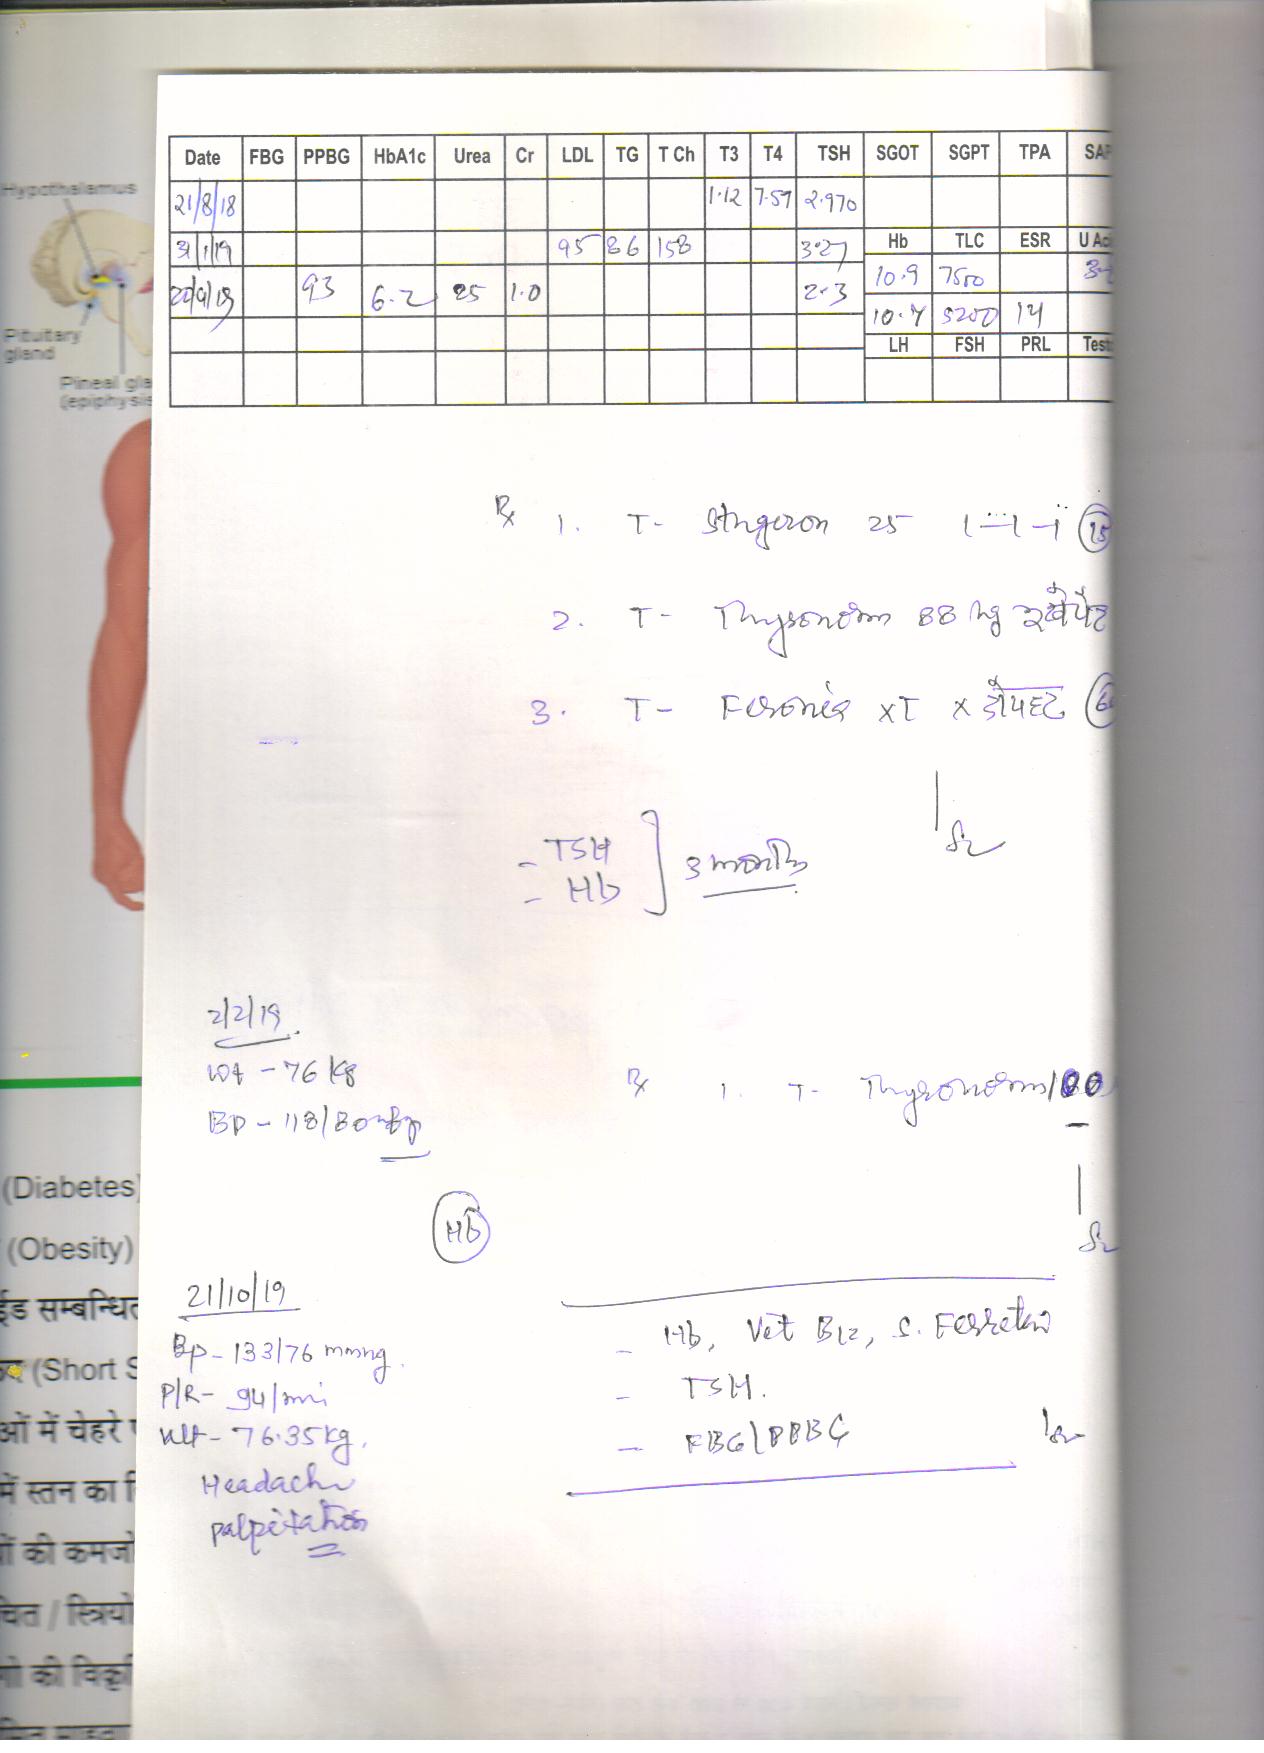 Hypothalamus
Pituitary
gland
Pineal gla
(epiphysis
Date FBG PPBG HbA1c Urea Cr LDL TG T Ch T3 T4 TSH SGOT SGPT TPA SAP
21/8/18 1.12 7.57 2.970
31/1/19 95 86 158 3.27
Hb TLC ESR U Aci
93 6.2 25 1.0 2.3
10.9 7500
10.7 5200 14
LH FSH PRL Test
Rx 1. T- Stugeron 25 1-1-1 15
2. T- Thyronorm 88 खाली पेट
3. T- XT X
- TSH
- Hb
3 months
2/2/19
wt - 76 kg
BP - 118/80
Rx 1. T- Thyronorm 100
(Diabetes)
Hb
(Obesity)
21/10/19
ईड सम्बन्धित
- Hb, Vit B12, S. Ferretin
BP - 133/76 mmHg
(Short S
P/R - 94/min
- TSH.
ओं में चेहरे
Wt - 76.35 kg,
- FBG/PPBG
में स्तन का
Headache
Palpitation
ों की कमजो
चित / स्त्रियों
गो की विकृ